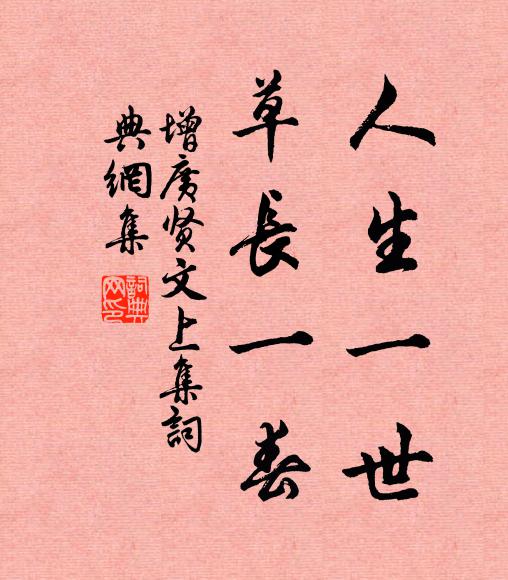 人生一世
草長一春
增廣贤文上集詞
典網集
詞典
网印